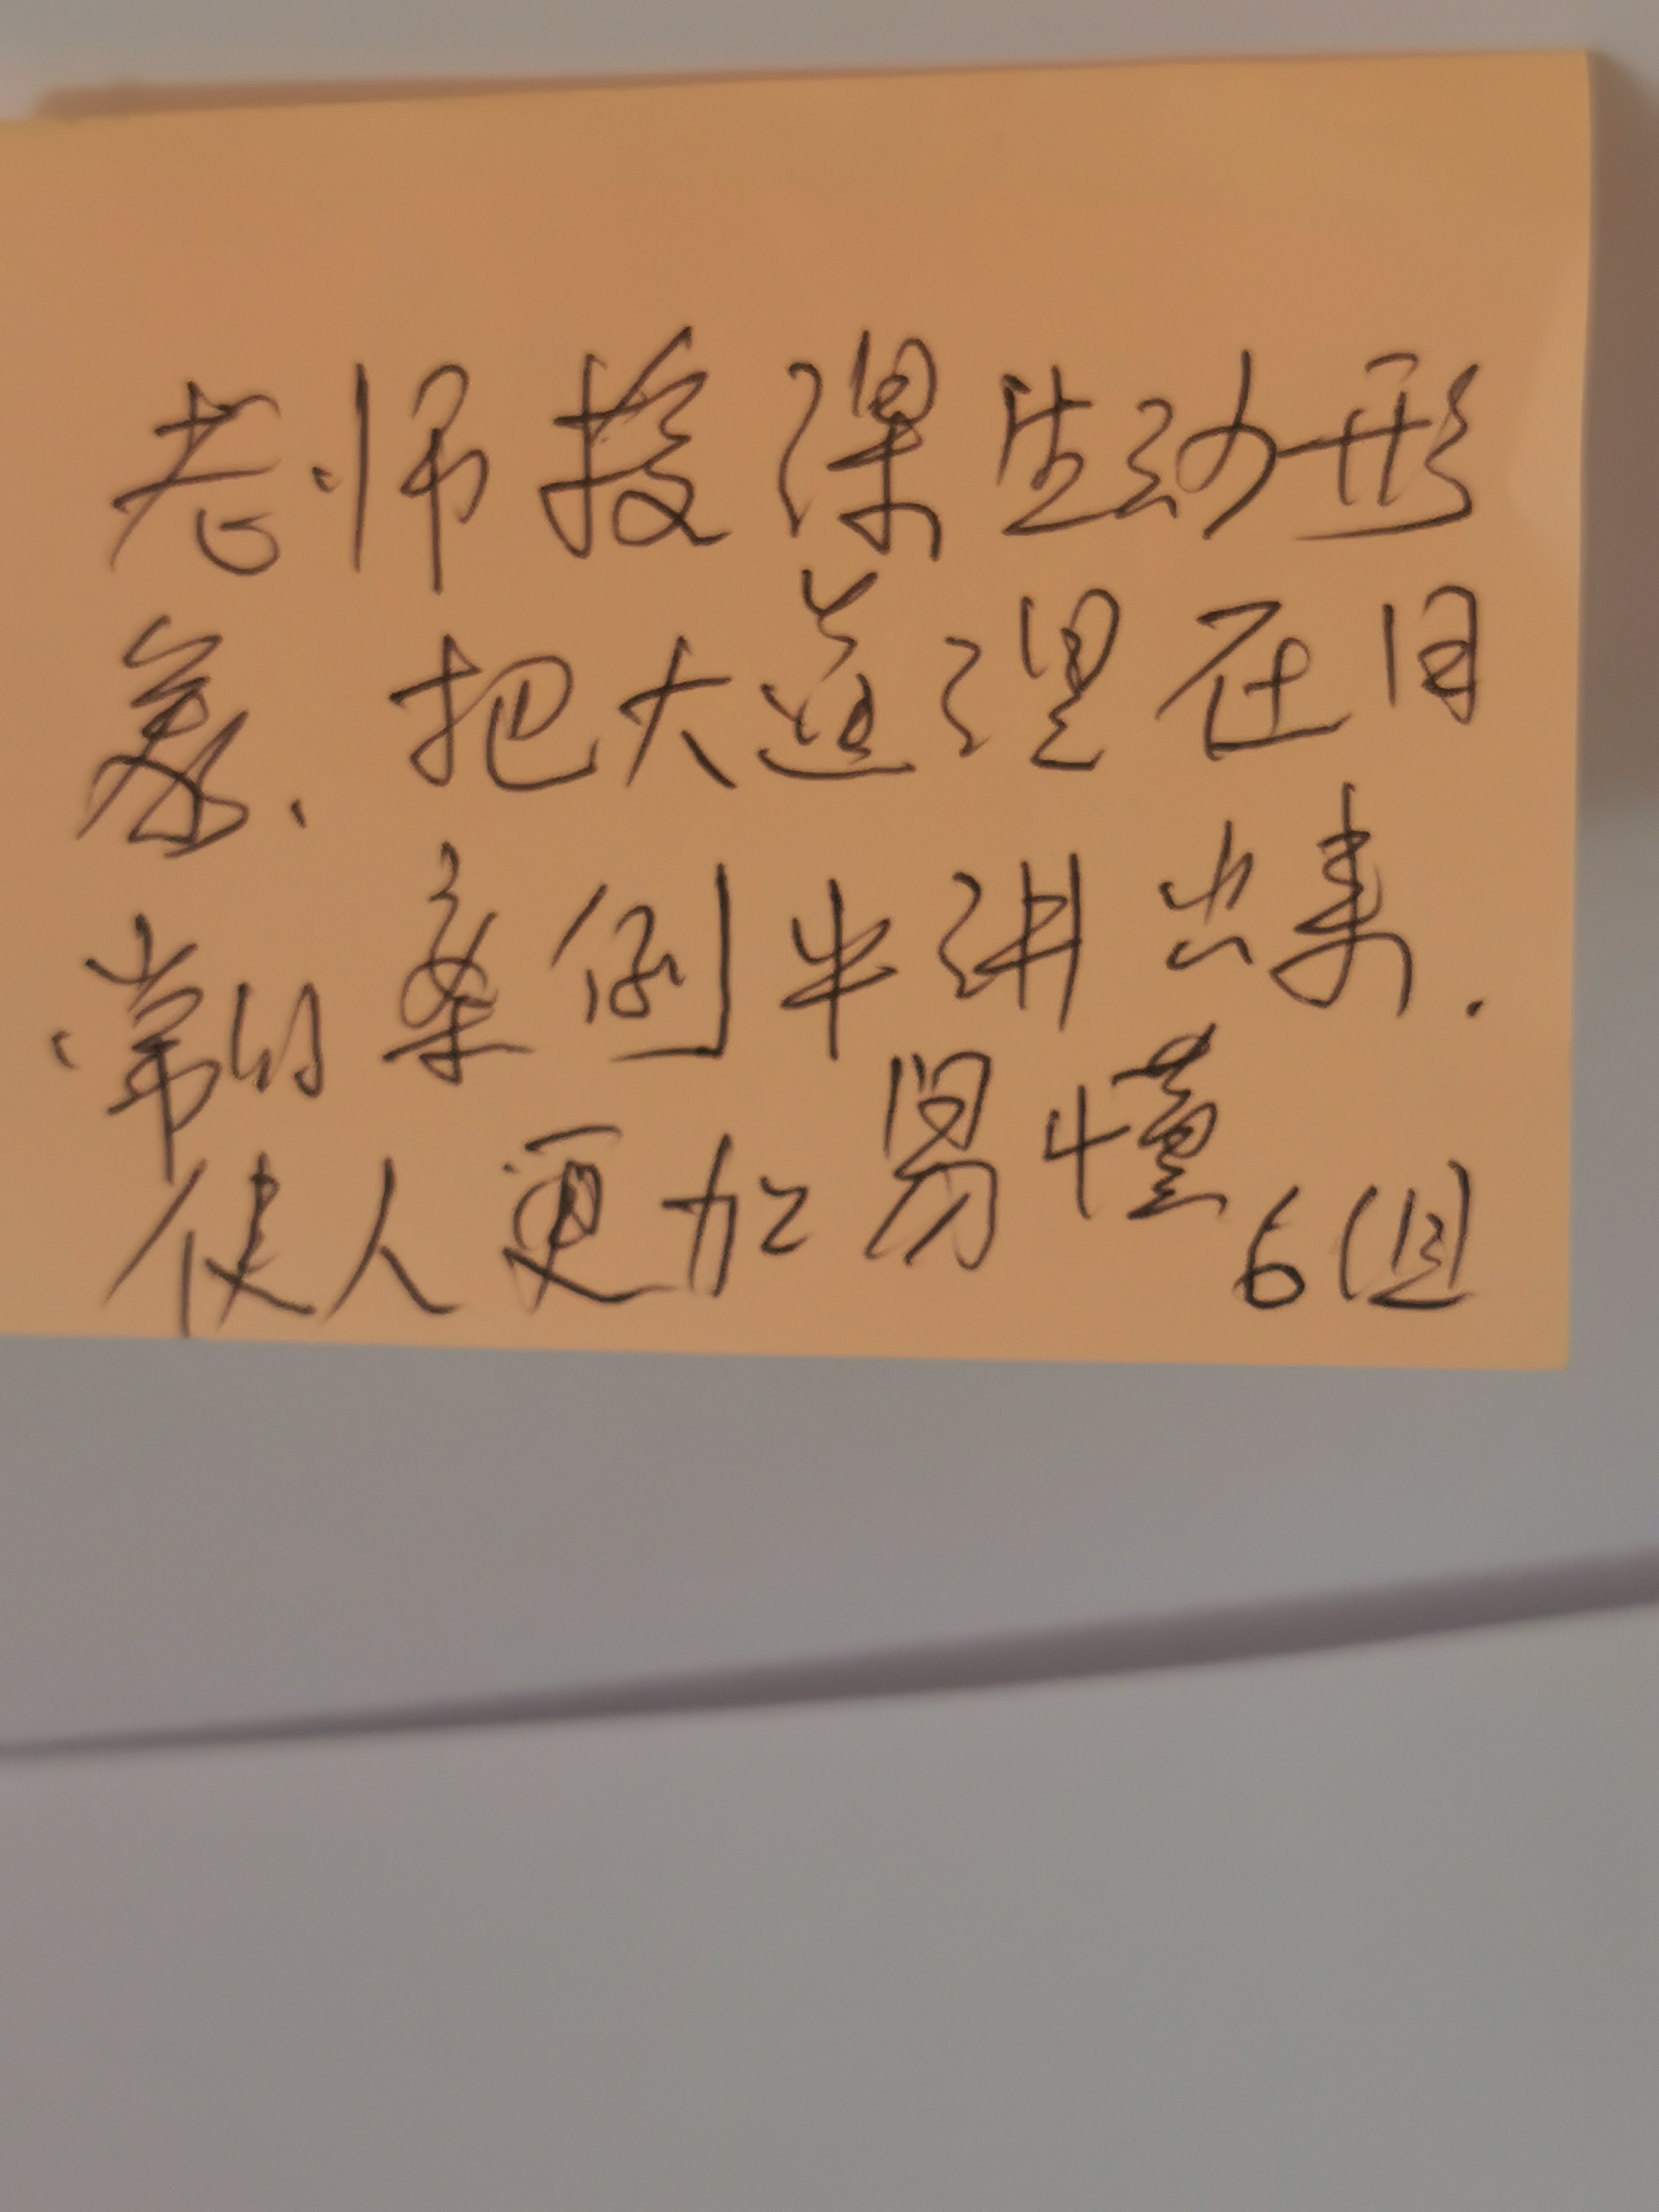 老师授课生动形
象、把大道理在日
常的案例中讲出来.
使人更加易懂
6组